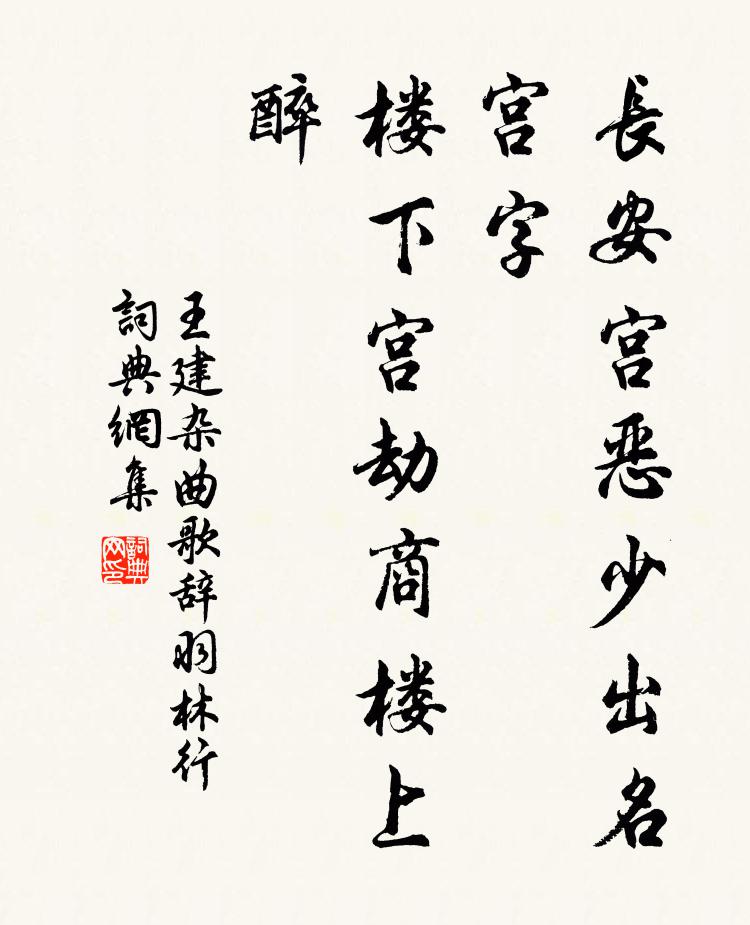 長安宫恶少出名
宫字
楼下宫劫商楼上
醉
王建杂曲歌辞羽林行
詞典網集
詞典网印